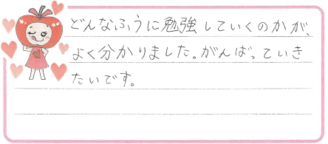 どんなふうに勉強していくのかが、
よく分かりました。がんばっていき
たいです。